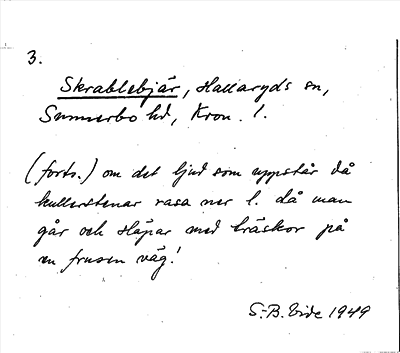 3.
Skrablebjär, Hallaryds sn,
Sunnerbo hd, Kron. l.
(forts.) om det ljud som uppstår då
kullerstenar rasa ner l. då man
går och släpar med träskor på
en frusen väg!
S.-B. Vide 1949